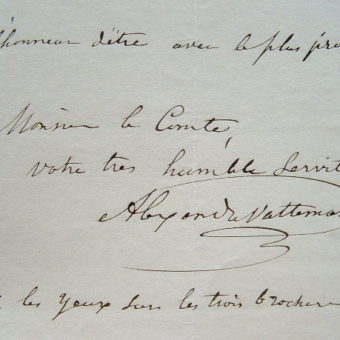 honneur d'être avec le plus pro
Monsieur le Comte,
votre très humble Servit
Alexandre Vattemar
les yeux sur les trois brochur